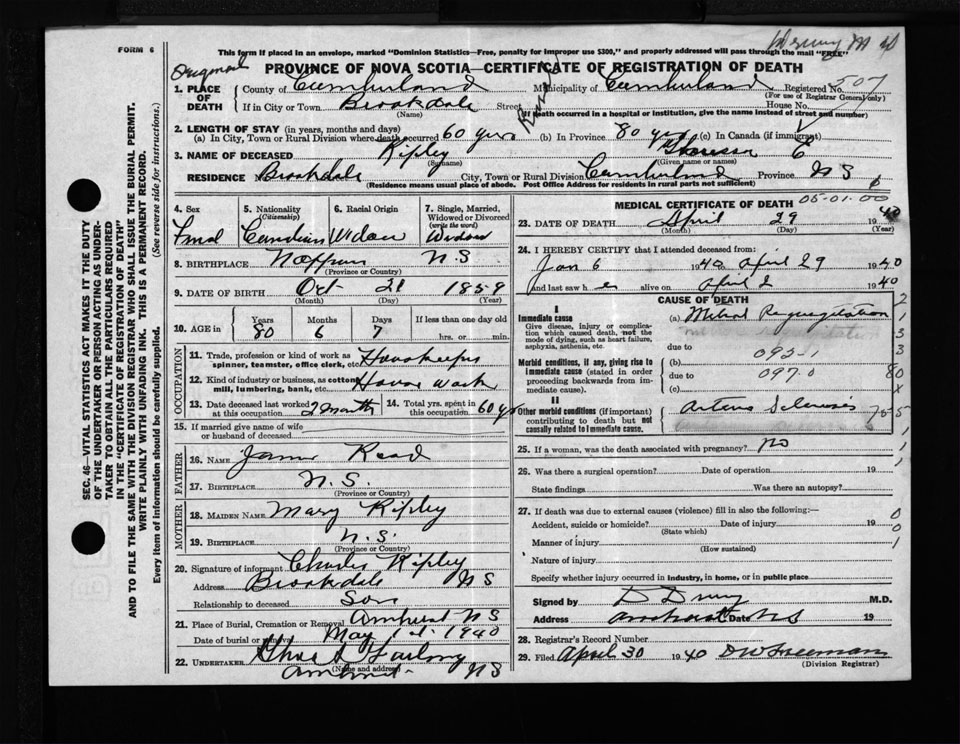 FORM 6
This form if placed in an envelope, marked "Dominion Statistics—Free, penalty for improper use $300," and properly addressed will pass through the mail "FREE"
Original
PROVINCE OF NOVA SCOTIA—CERTIFICATE OF REGISTRATION OF DEATH
1. PLACE OF DEATH
County of Cumberland Municipality of Cumberland Registered No. 507
(For use of Registrar General only)
If in City or Town Brookdale Street House No.
(Name) (If death occurred in a hospital or institution, give the name instead of street and number)
2. LENGTH OF STAY (in years, months and days)
(a) In City, Town or Rural Division where death occurred 60 yrs (b) In Province 80 yrs (c) In Canada (if immigrant)
3. NAME OF DECEASED Ripley E
(Surname) (Given name or names)
RESIDENCE Brookdale City, Town or Rural Division Cumberland Province N S
(Residence means usual place of abode. Post Office Address for residents in rural parts not sufficient)
SEC. 46—VITAL STATISTICS ACT MAKES IT THE DUTY
OF THE UNDERTAKER OR PERSON ACTING AS UNDER-
TAKER TO OBTAIN ALL THE PARTICULARS REQUIRED
IN THE "CERTIFICATE OF REGISTRATION OF DEATH"
AND TO FILE THE SAME WITH THE DIVISION REGISTRAR WHO SHALL ISSUE THE BURIAL PERMIT.
WRITE PLAINLY WITH UNFADING INK. THIS IS A PERMANENT RECORD.
Every item of information should be carefully supplied. (See reverse side for instructions.)
4. Sex 5. Nationality (Citizenship) 6. Racial Origin 7. Single, Married, Widowed or Divorced (write the word)
Canadian Widow Widow
8. BIRTHPLACE Nappan N S
(Province or Country)
9. DATE OF BIRTH Oct 21 1859
(Month) (Day) (Year)
10. AGE in Years Months Days If less than one day old
80 6 7 hrs. or min.
OCCUPATION
11. Trade, profession or kind of work as spinner, teamster, office clerk, etc. Housekeeper
12. Kind of industry or business, as cotton mill, lumbering, bank, etc. House Work
13. Date deceased last worked at this occupation 2 months 14. Total yrs. spent in this occupation 60 yrs
15. If married give name of wife or husband of deceased
FATHER
16. Name James Read
17. Birthplace N.S.
(Province or Country)
MOTHER
18. Maiden Name Mary Ripley
19. Birthplace N.S.
(Province or Country)
20. Signature of informant Charles Ripley
Address Brookdale N S
Relationship to deceased Son
21. Place of Burial, Cremation or Removal Amherst N S
Date of burial or removal May 1st 1940
22. Undertaker
(Name and address)
Amherst N S
MEDICAL CERTIFICATE OF DEATH 05-01.00
23. DATE OF DEATH April 29 1940
(Month) (Day) (Year)
24. I HEREBY CERTIFY that I attended deceased from:
Jan 6 1940 to April 29 1940
and last saw h e alive on April 2 1940
CAUSE OF DEATH
I
Immediate cause
Give disease, injury or complication which caused death, not the mode of dying, such as heart failure, asphyxia, asthenia, etc.
(a) Mitral Regurgitation
due to
Morbid conditions, if any, giving rise to immediate cause (stated in order proceeding backwards from immediate cause).
(b) 092-1
due to 097.0
(c)
II
Other morbid conditions (if important) contributing to death but not causally related to immediate cause.
Arterio Sclerosis
25. If a woman, was the death associated with pregnancy? No
26. Was there a surgical operation? Date of operation 19
State findings Was there an autopsy?
27. If death was due to external causes (violence) fill in also the following:—
Accident, suicide or homicide? Date of injury 19
(State which)
Manner of injury
(How sustained)
Nature of injury
Specify whether injury occurred in industry, in home, or in public place
Signed by M.D.
Address Amherst N S Date 19
28. Registrar's Record Number
29. Filed April 30 1940 D W Freeman
(Division Registrar)